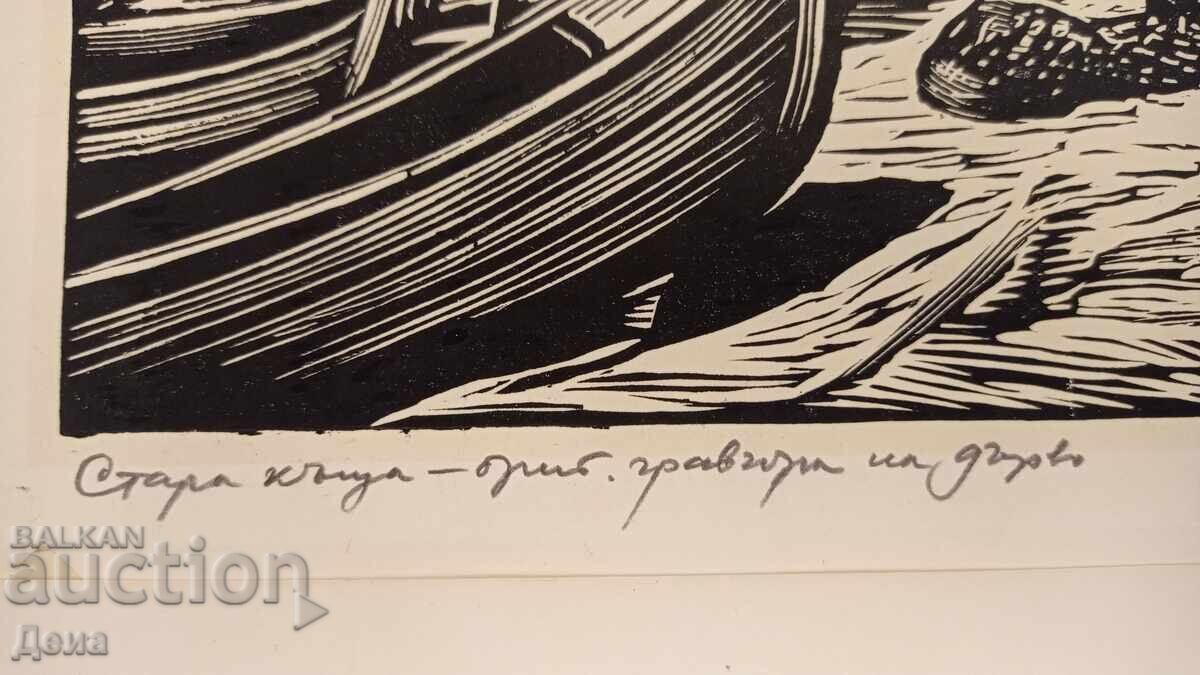 Стара къща – ориг. гравюра на дърво
BALKAN
auction
Деиа